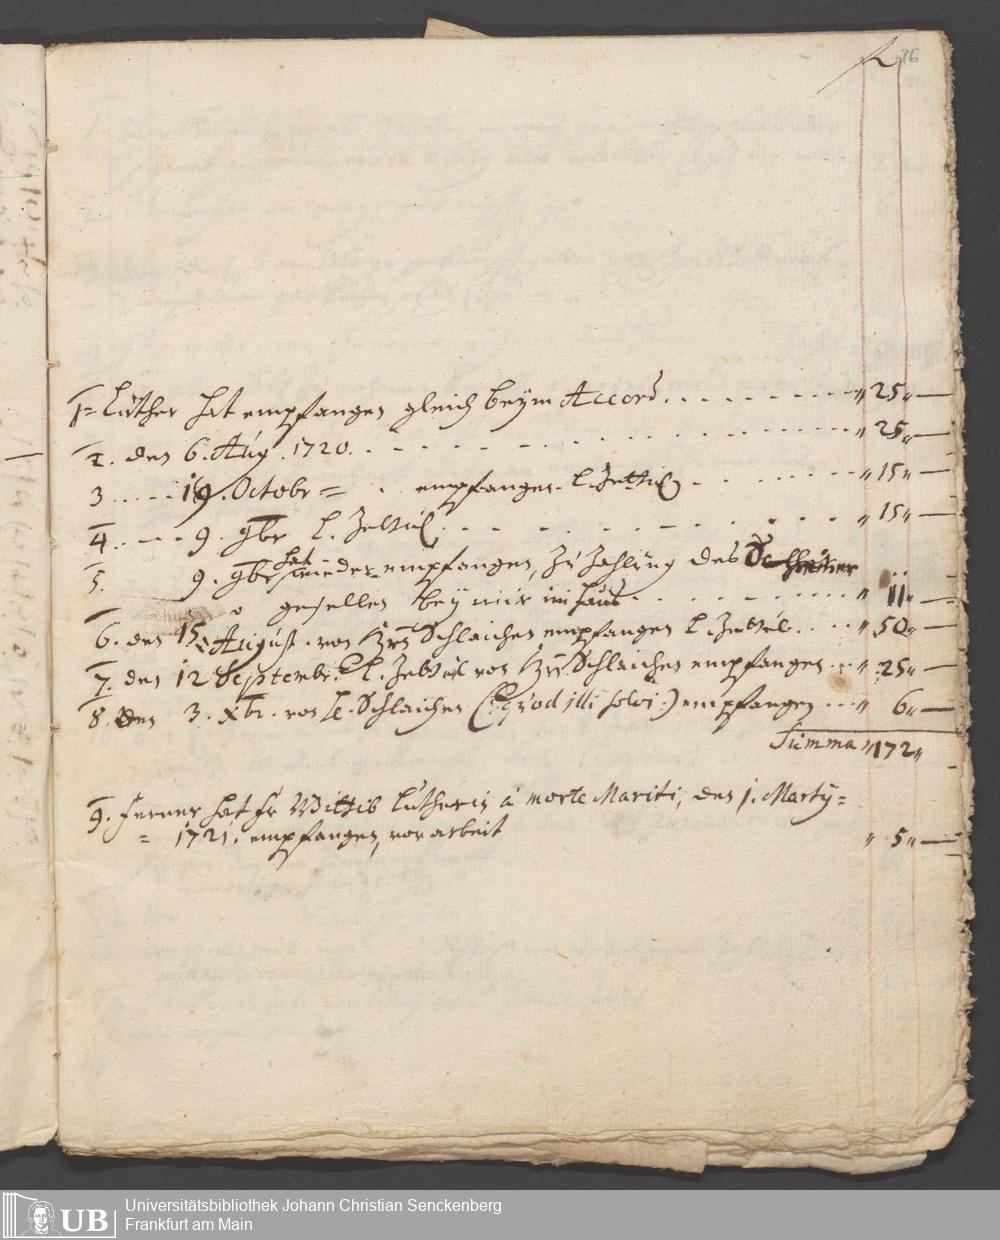 fl 76
1= Lüther hat empfangen gleich beÿm Accord " 25 "
2. den 6. Aúg. 1720. " 25 "
3 19. Octobr = empfangen l. Zettul " 15 "
4. 9. 9br l. Zettul " 15 "
5. 9. 9br hat wieder empfangen, zú zahlúng des
gesellen beÿ mir im haus " 11 "
6. den 15. Aúgúst. von Hrn Schlaichen empfangen l. Zettul " 50 "
7. den 12 Septembr. l. Zettul von Hrn Schlaichen empfangen " 25 "
8. den 3. Xbr. von Schlaichen (: quod illi solvi :) empfangen " 6 "
Summa " 172 "
9. ferner hat fr Wittib Lutherin á morte Mariti, den 1. Martÿ =
= 1721. empfangen, vor arbeit " 5 "
UB Universitätsbibliothek Johann Christian Senckenberg
Frankfurt am Main